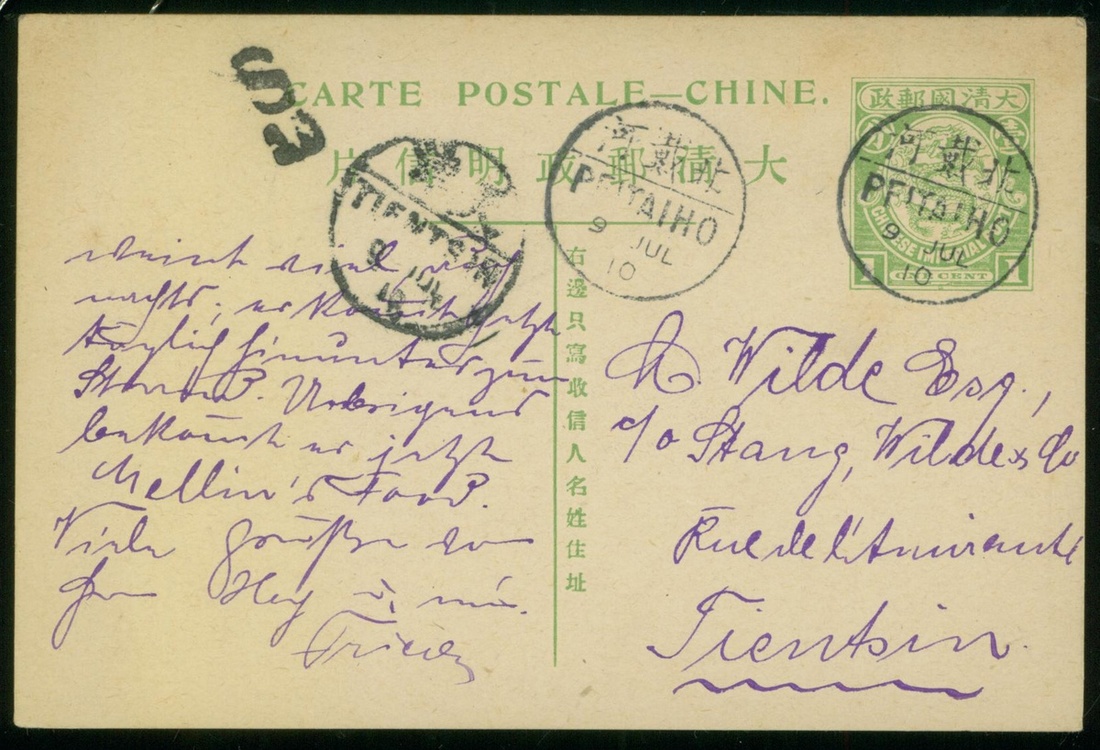 CARTE POSTALE—CHINE.
片信明政郵清大
政郵國清大
CHINESE IMPERIAL
1 CENT 1
北戴河
PEITAIHO
9 JUL
10
北戴河
PEITAIHO
9 JUL
10
TIENTSIN
9 JUL
10
右邊只寫收信人名姓住址
weint viel
nachts; er kommt jetzt
täglich hinunter zum
Strand. Uebrigens
bekommt er jetzt
Mellin's Food.
Viele Grüsse von
Frieda
Wilde Esq.,
c/o Stang, Wilde & Co
Rue de l'Amirauté
Tientsin.